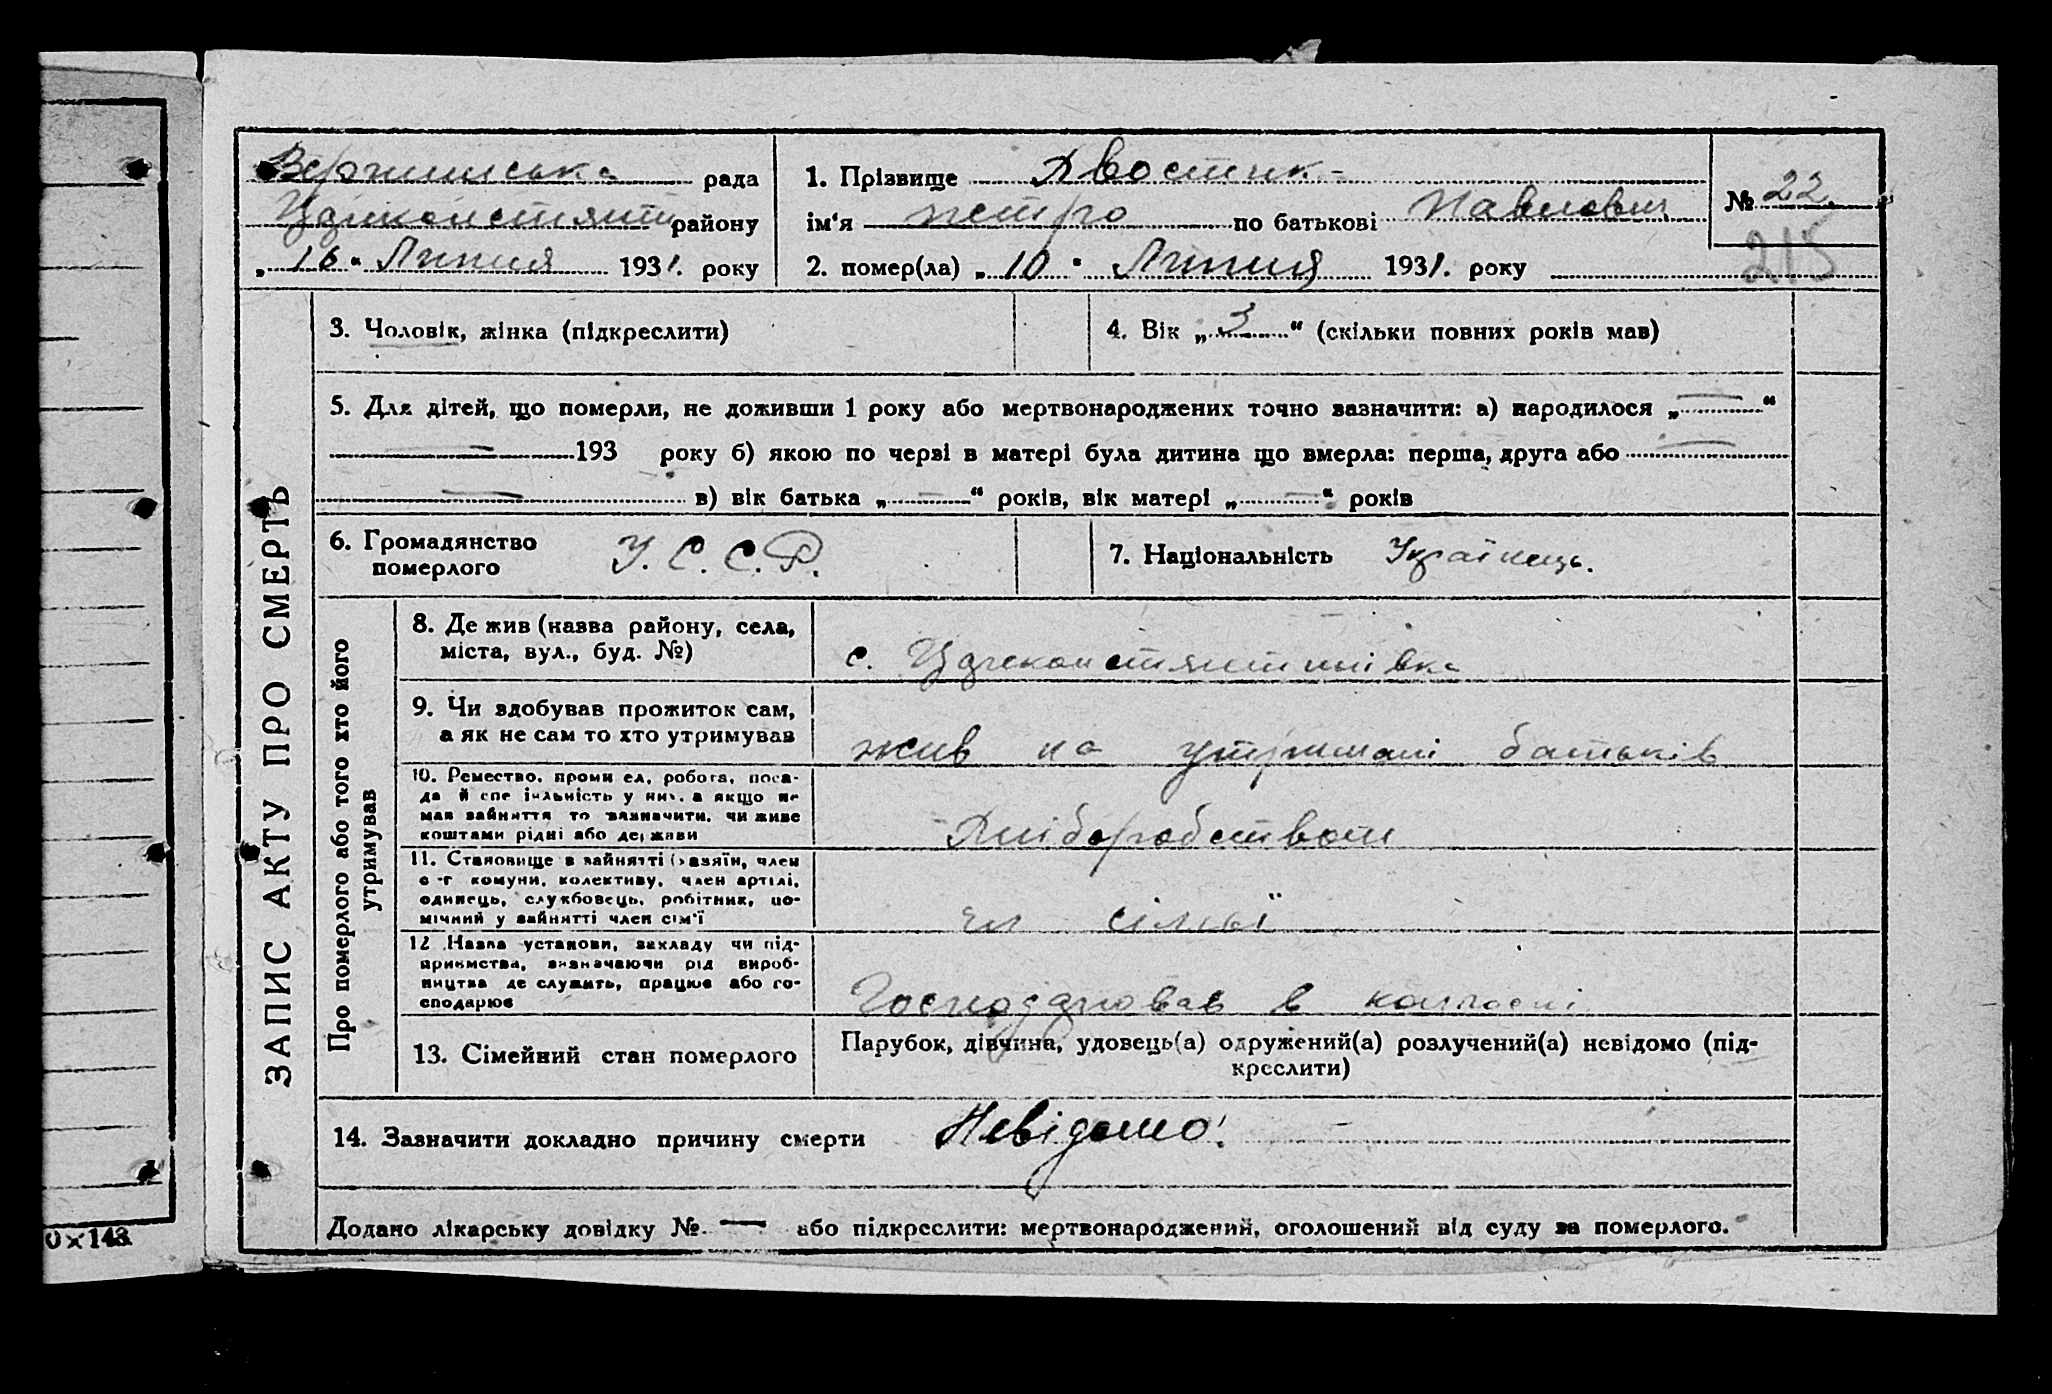 Вершинська рада
Цареконстянти району
„16“ Липня 1931. року
1. Прізвище Хвостик
ім‘я петро по батькові Павлович
2. помер(ла) „10“ Липня 1931. року
№ 22
215
ЗАПИС АКТУ ПРО СМЕРТЬ
3. Чоловік, жінка (підкреслити)
4. Вік „3“ (скільки повних років мав)
5. Для дітей, що померли, не доживши 1 року або мертвонароджених точно зазначити: а) народилося „—“
— 193 року б) якою по черзі в матері була дитина що вмерла: перша, друга або —
— в) вік батька „—“ років, вік матері „—“ років
6. Громадянство
померлого
У. С. С. Р.
7. Національність Українець.
Про померлого або того хто його
утримував
8. Де жив (назва району, села,
міста, вул., буд. №)
с. Цареконстянтинівка
9. Чи здобував прожиток сам,
а як не сам то хто утримував
жив на утримані батьків
10. Ремество, промисел, робота, поса-
да й спеціяльність у них, а якщо не
мав зайняття то зазначити, чи живе
коштами рідні або держави
Хліборобством
11. Становище в зайнятті (хазяїн, член
с-г комуни, колективу, член артілі,
одинець, службовець, робітник, по-
мічний у зайнятті член сім'ї
чл сімьї
12. Назва установи, закладу чи під-
приємства, визначаючи рід вироб-
ництва де служить, працює або го-
сподарює
Господарював в колгоспі
13. Сімейний стан померлого
Парубок, дівчина, удовець(а) одружений(а) розлучений(а) невідомо (під-
креслити)
14. Зазначити докладно причину смерти Невідомо!
Додано лікарську довідку № — або підкреслити: мертвонароджений, оголошений від суду за померлого.
0×143